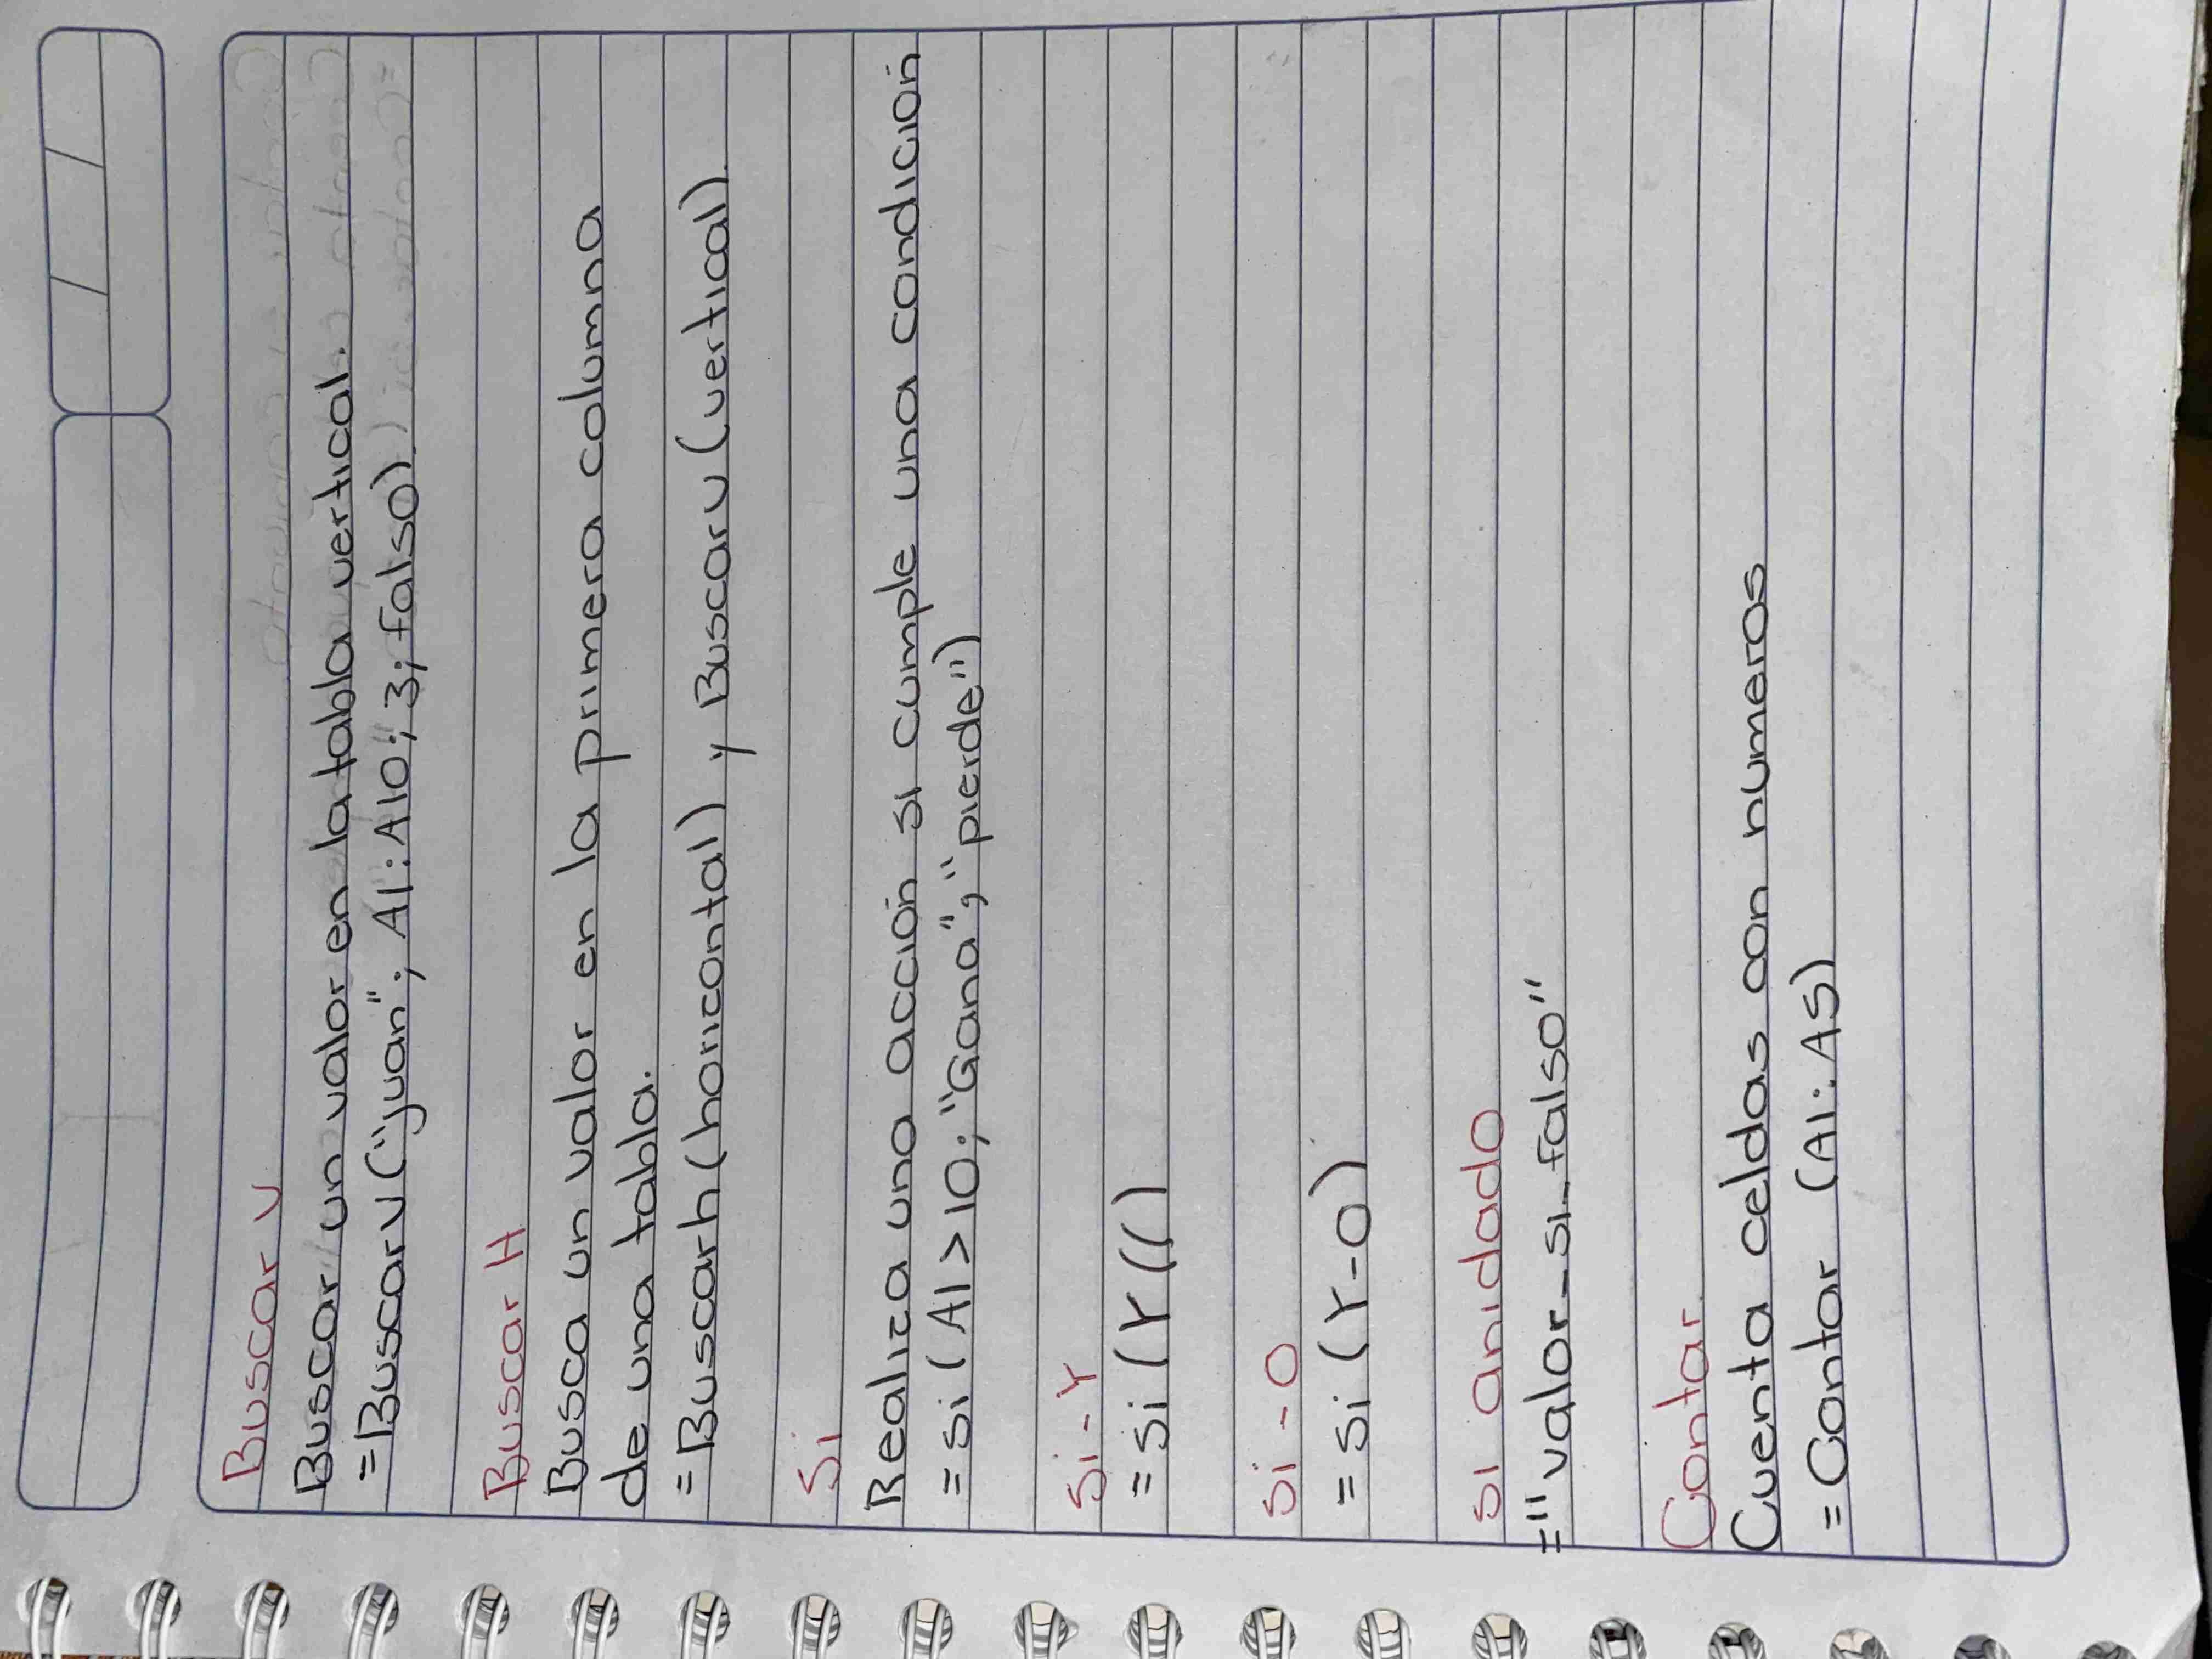 Buscar V
Buscar un valor en la tabla vertical.
=BuscarV("juan"; A1:A10; 3; falso)
Buscar H
Busca un valor en la primera columna
de una tabla.
=Buscarh(horizontal) y Buscarv(vertical)
Si
Realiza una acción si cumple una condición
=si(A1>10; "Gana", "pierde")
Si-Y
=si(Y(()
Si-O
=si(Y-O)
si anidado
="valor_si_falso"
Contar
Cuenta celdas con numeros
=Contar (A1:A5)